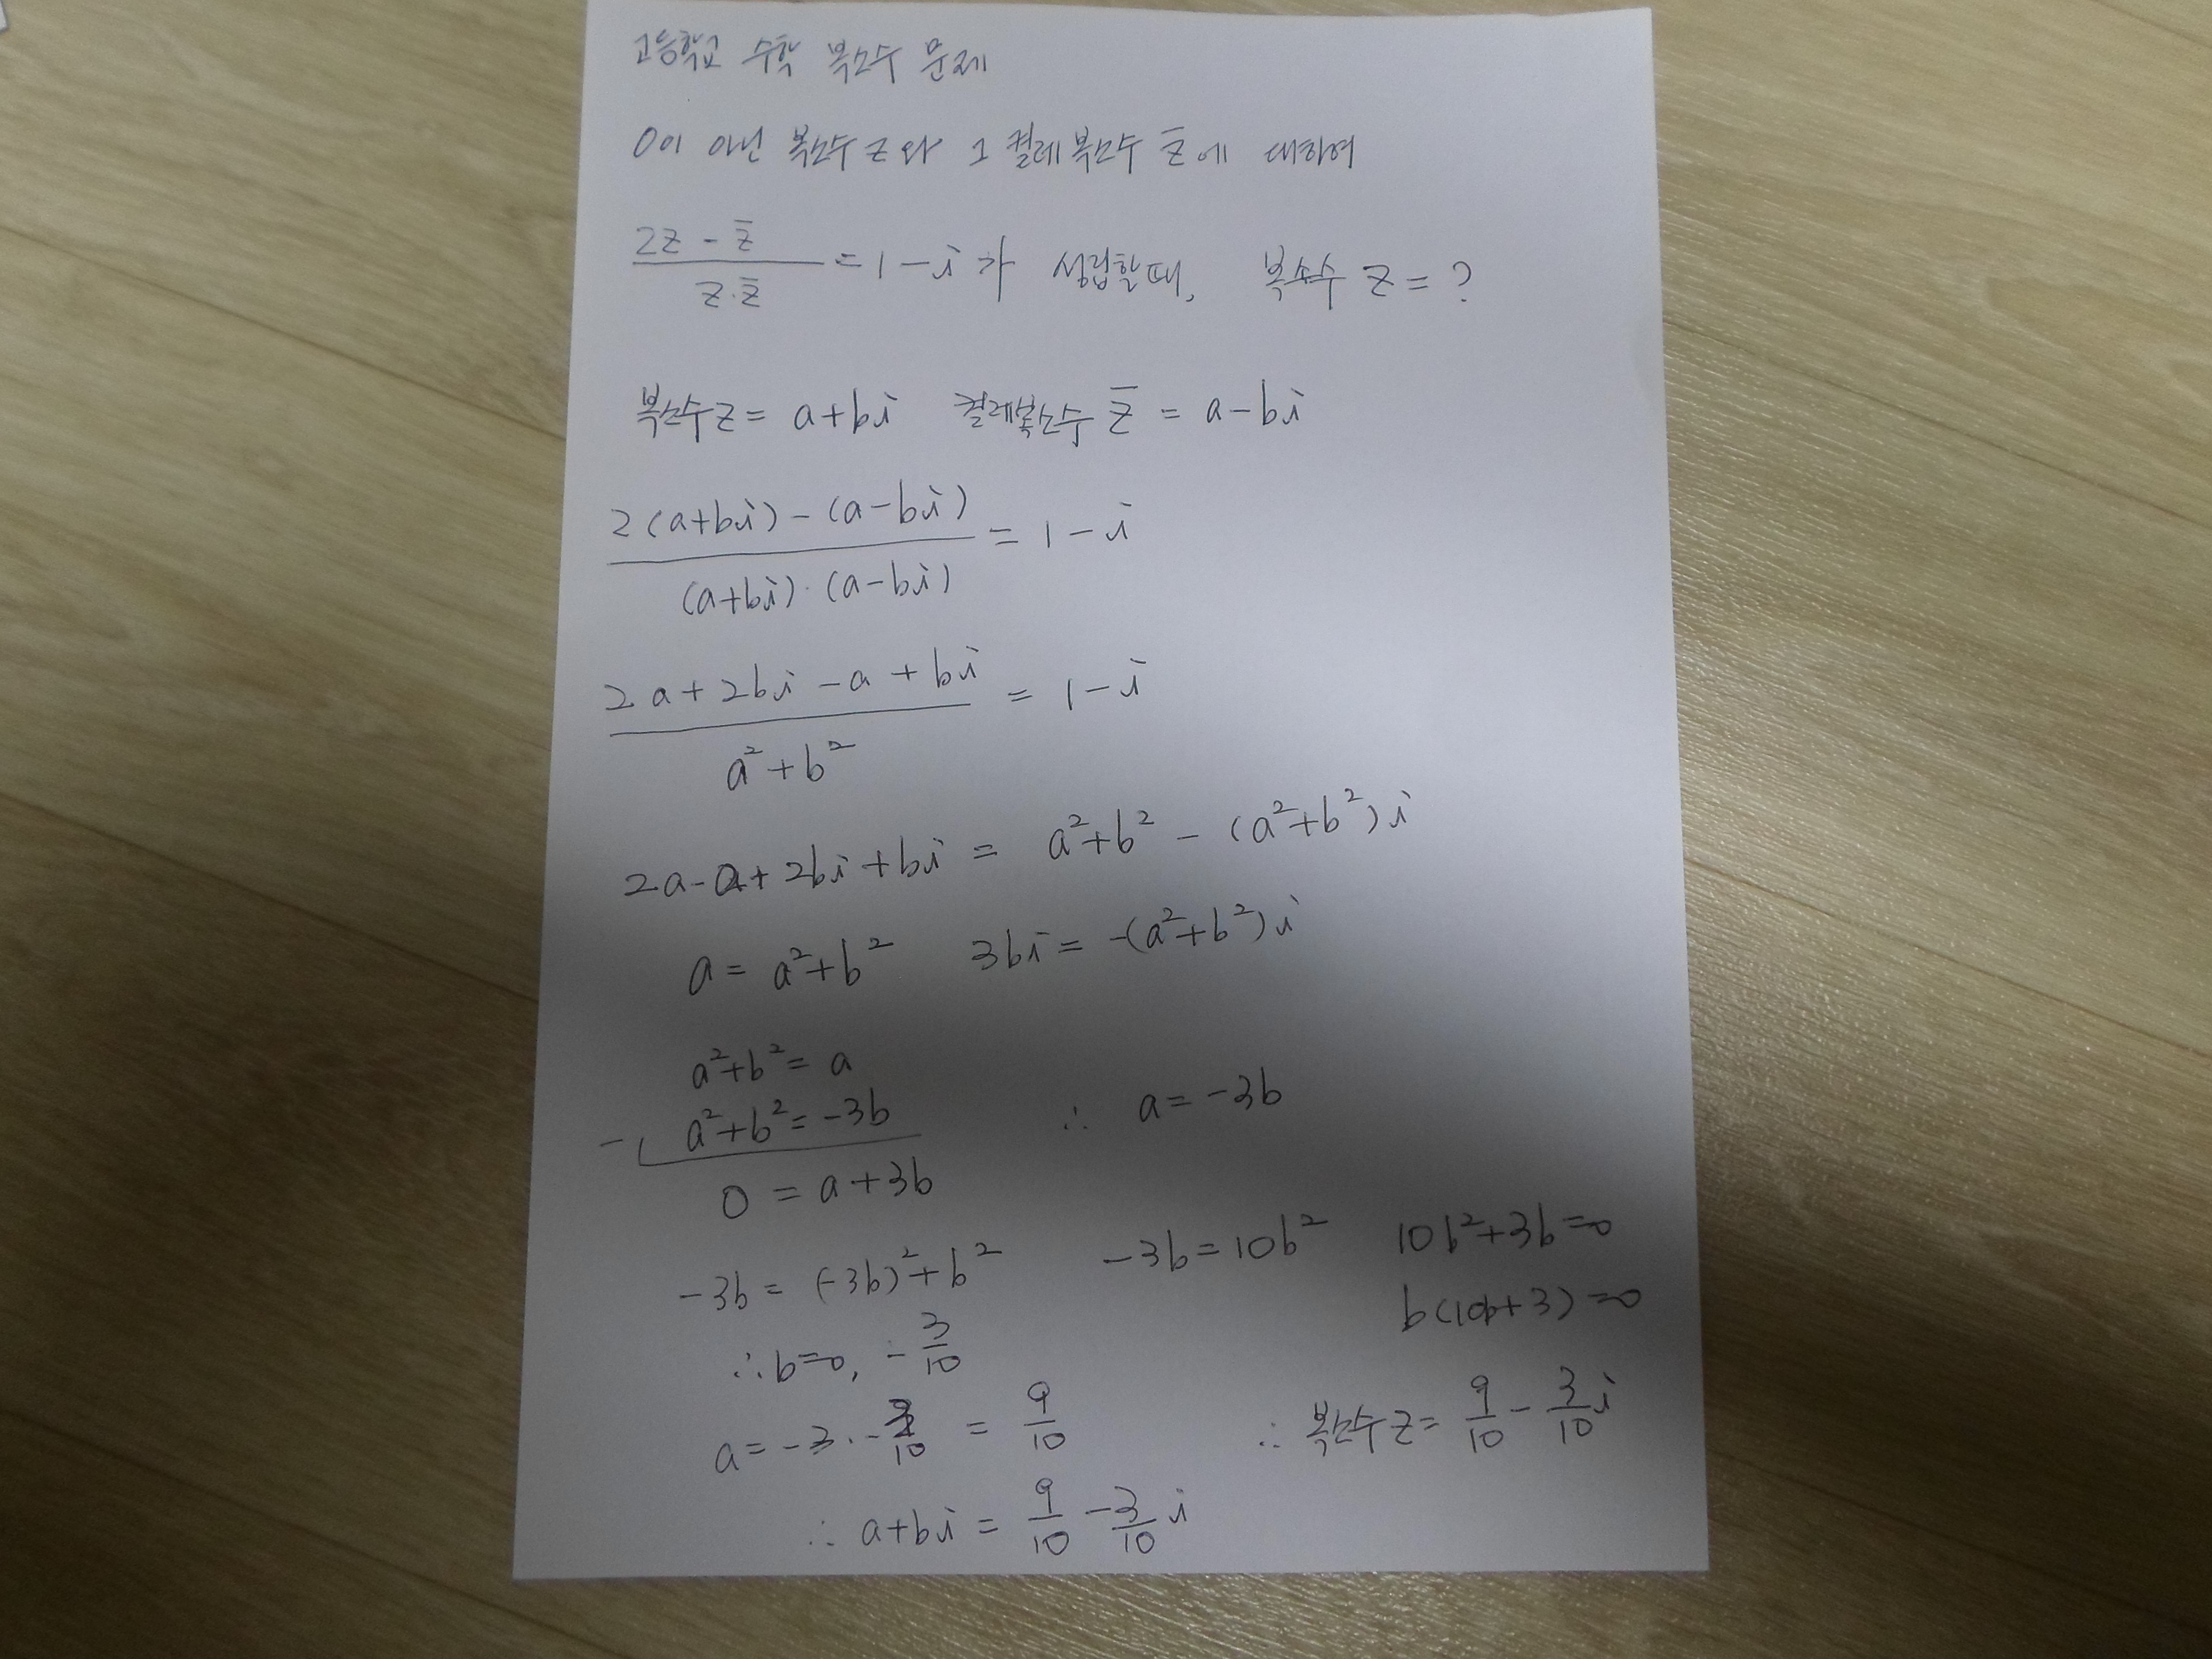 고등학교 수학 복소수 문제
0이 아닌 복소수 z와 그 켤레복소수 z̅에 대하여
(2z - z̅)/(z·z̅) = 1 - i 가 성립할때, 복소수 z = ?
복소수 z = a+bi 켤레복소수 z̅ = a-bi
(2(a+bi) - (a-bi))/((a+bi)·(a-bi)) = 1 - i
(2a+2bi-a+bi)/(a²+b²) = 1 - i
2a-a+2bi+bi = a²+b² - (a²+b²)i
a = a²+b² 3bi = -(a²+b²)i
a²+b² = a
-( a²+b² = -3b ∴ a = -3b
0 = a+3b
-3b = (-3b)²+b² -3b = 10b² 10b²+3b=0
b(10b+3)=0
∴ b=0, -3/10
a = -3·-3/10 = 9/10 ∴ 복소수 z = 9/10 - 3/10 i
∴ a+bi = 9/10 - 3/10 i